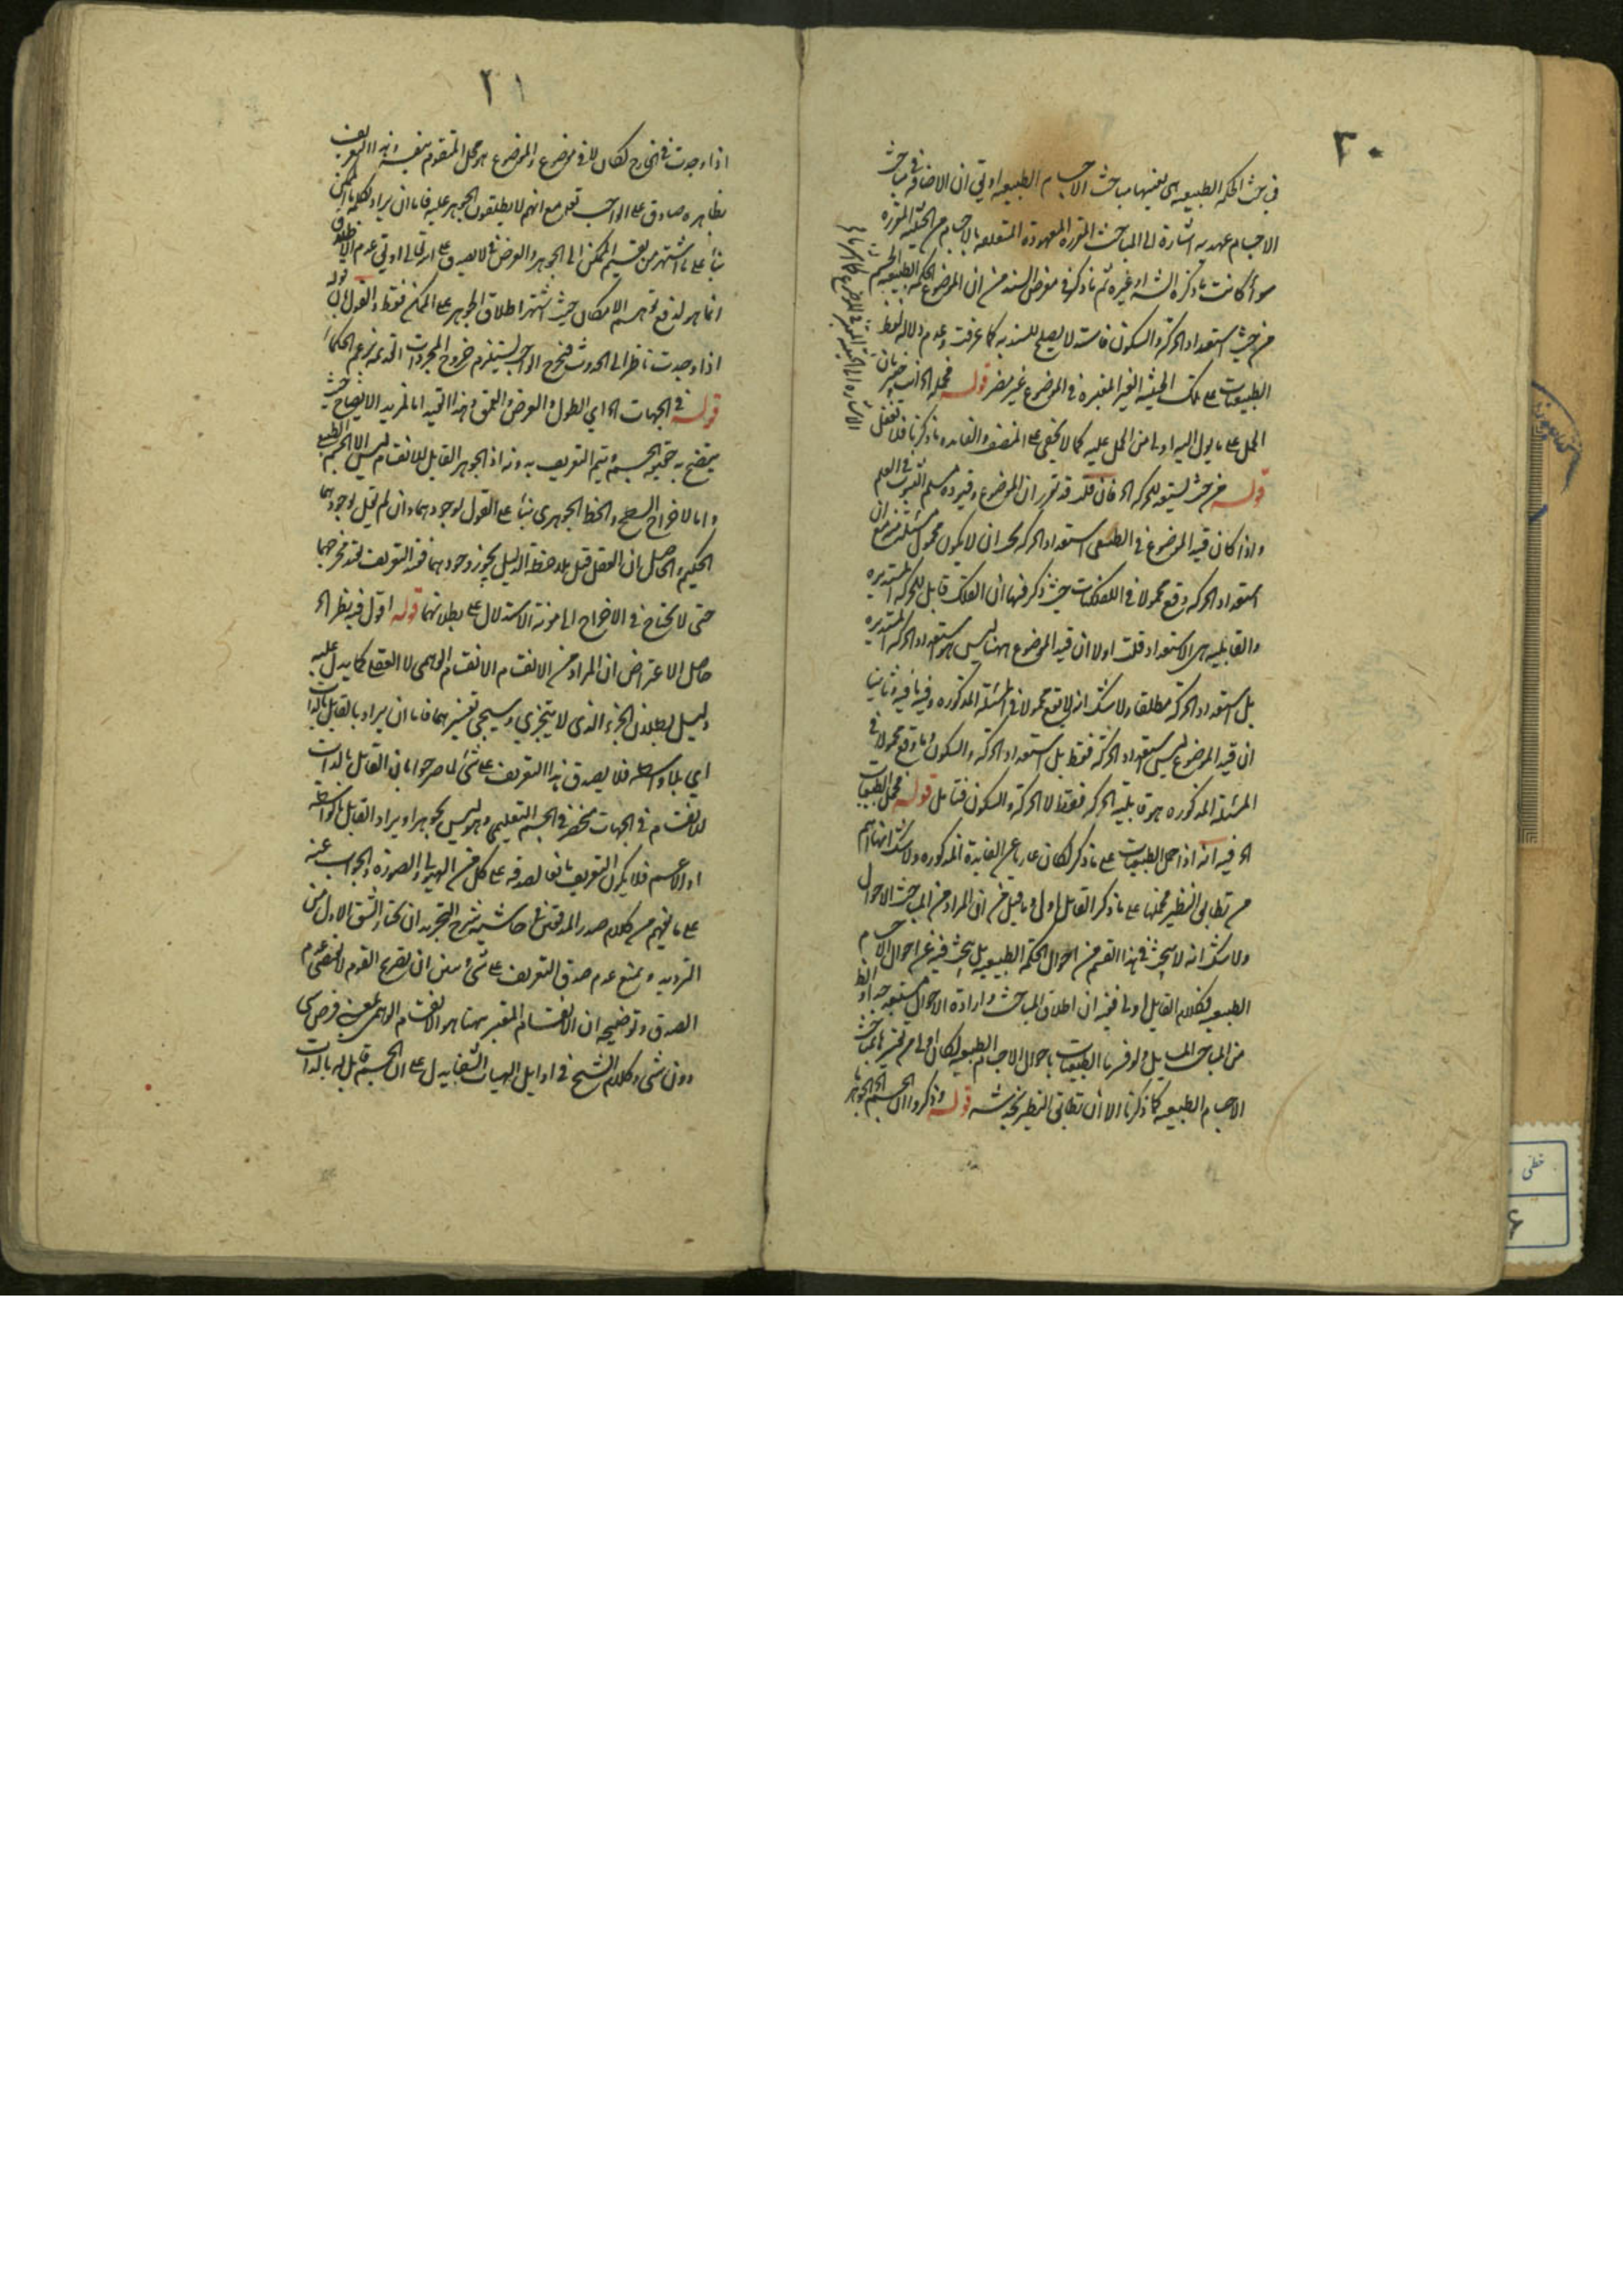 ٣٠
في بحث الحكمة الطبيعية اي بعينها مباحث الاجسام الطبيعية او تي ان الاضافة في مباحث
الاجسام عهدية اشارة الى المباحث المقررة المعهودة المتعلقة بالاجسام من الحيثية المقررة
سواء كانت ما ذكره الشه او غيره ثم ما ذكر في معرض السند من ان الموضوع الحكمة الطبيعية الجسم
من حيث استعداد الحركة والسكون فاسد لا يصلح للسندية كما عرفت وعدم دلالة لفظ
الطبيعيات على تلك الحيثية الغير المعتبرة في الموضوع غير مضر قوله فحمله الخ انت خبير بان
الحمل على ما يول اليه اولى من الحمل عليه كما لا يخفى على المنصف والفايدة ما ذكرنا فلا تغفل
قوله من حيث يستعد للحركة الخ فان قلت قد تقرر ان الموضوع وقيوده مسلم الثبوت في العلم
واذا كان قيد الموضوع في الطبيعي استعداد الحركة يجب ان لا يكون محمول مسئلة منه مع ان
استعداد الحركة وقع محمولا في الفلكيات حيث ذكر فيها ان الفلك قابل للحركة المستديرة
والقابلية هي الاستعداد قلت اولا ان قيد الموضوع ههنا ليس هو استعداد الحركة المستديرة
بل استعداد الحركة مطلقا ولا شك انه لا يقع محمولا في المسئلة المذكورة وفيه ما فيه وثانيا
ان قيد الموضوع ليس استعداد الحركة فقط بل استعداد الحركة والسكون وما وقع محمولا في
المسئلة المذكورة هو قابلية الحركة فقط لا الحركة والسكون فتامل قوله فحمل الطبيعيات
الخ فيه انه اذا حمل الطبيعيات على ما ذكر لكان عاريا عن الفايدة المذكورة ولا شك انها اهم
من تطابق النظير فحملها على ما ذكر القايل اولى وما قيل من ان المراد من المباحث الاحوال
ولا شك انه لا يبحث في هذا القسم من احوال الحكمة الطبيعية بل يبحث فيه عن احوال الاجسام
الطبيعية فكلام القايل اولى ففيه ان اطلاق المباحث وارادة الاحوال مستبعد جدا والظ
من المباحث المسايل ولو فسر الطبيعيات باحوال الاجسام الطبيعية لكان اولى من تفسيرها بمباحث
الاجسام الطبيعية كما ذكرنا الا ان تطابق النظير يخدشه قوله وذكروا ان الجسم الخ الجوهر
٢١
اذا وجدت في الخارج لكان لا في موضوع والموضوع هو محل المتقوم بنفسه وهذا التعريف
بظاهره صادق على الواجب تعلى مع انهم لا يطلقون الجوهر عليه فاما ان يراد بكلمة ما الممكن
بناء على ما اشتهر من تقسيم الممكن الى الجوهر والعرض فلا يصدق على الواجب تعالى او تي عدم الاطلاق
انما هو لدفع توهم الامكان حيث اشتهر اطلاق الجوهر على الممكن فقط والقول بان قوله
اذا وجدت ناظر الى الحدوث فيخرج الواجب يستلزم خروج المجردات القديمة بزعم الحكماء
قوله في الجهات الخ اي الطول والعرض والعمق وهذا القيد اما لمزيد الايضاح حيث
يتضح به حقيقة الجسم ويتم التعريف بدونه اذ الجوهر القابل للانقسام ليس الا الجسم الطبيعي
واما لاخراج السطح والخط الجوهري بناء على القول بوجودهما وان لم يقل بوجودهما
الحكيم والحاصل ان العقل قبل ملاحظة الدليل يجوز وجودهما فقيد التعريف بقيد مخرجهما
حتى لا يحتاج في الاخراج الى مؤنة الاستدلال على بطلانهما قوله اقول فيه نظر الخ
حاصل الاعتراض ان المراد من الانقسام الانقسام الوهمي لا العقلي كما يدل عليه
دليل بطلان الجزء الذي لا يتجزي وسيجي تفسيرهما فاما ان يراد بالقابل بالذات
اي بلا واسطة فلا يصدق هذا التعريف على شي لما صرحوا بان القابل بالذات
للانقسام في الجهات منحصر في الجسم التعليمي وهو ليس بجوهر او يراد القابل بالواسطة
او الاعم فلا يكون التعريف مانعا لصدقه على كل من الهيولى والصورة والجواب عنه
على ما يفهم من كلام صدر المدققين في حاشية شرح التجريد ان نختار الشق الاول من
الترديد ونمنع عدم صدق التعريف على شي ونبين ان تصريح القوم لا يقتضي عدم
الصدق وتوضيحه ان الانقسام المعتبر ههنا هو الانقسام الوهمي بمعنى فرض شي
دون شي وكلام الشيخ في اوايل الهيات الشفا يدل على ان الجسم قابل له بالذات
خطی